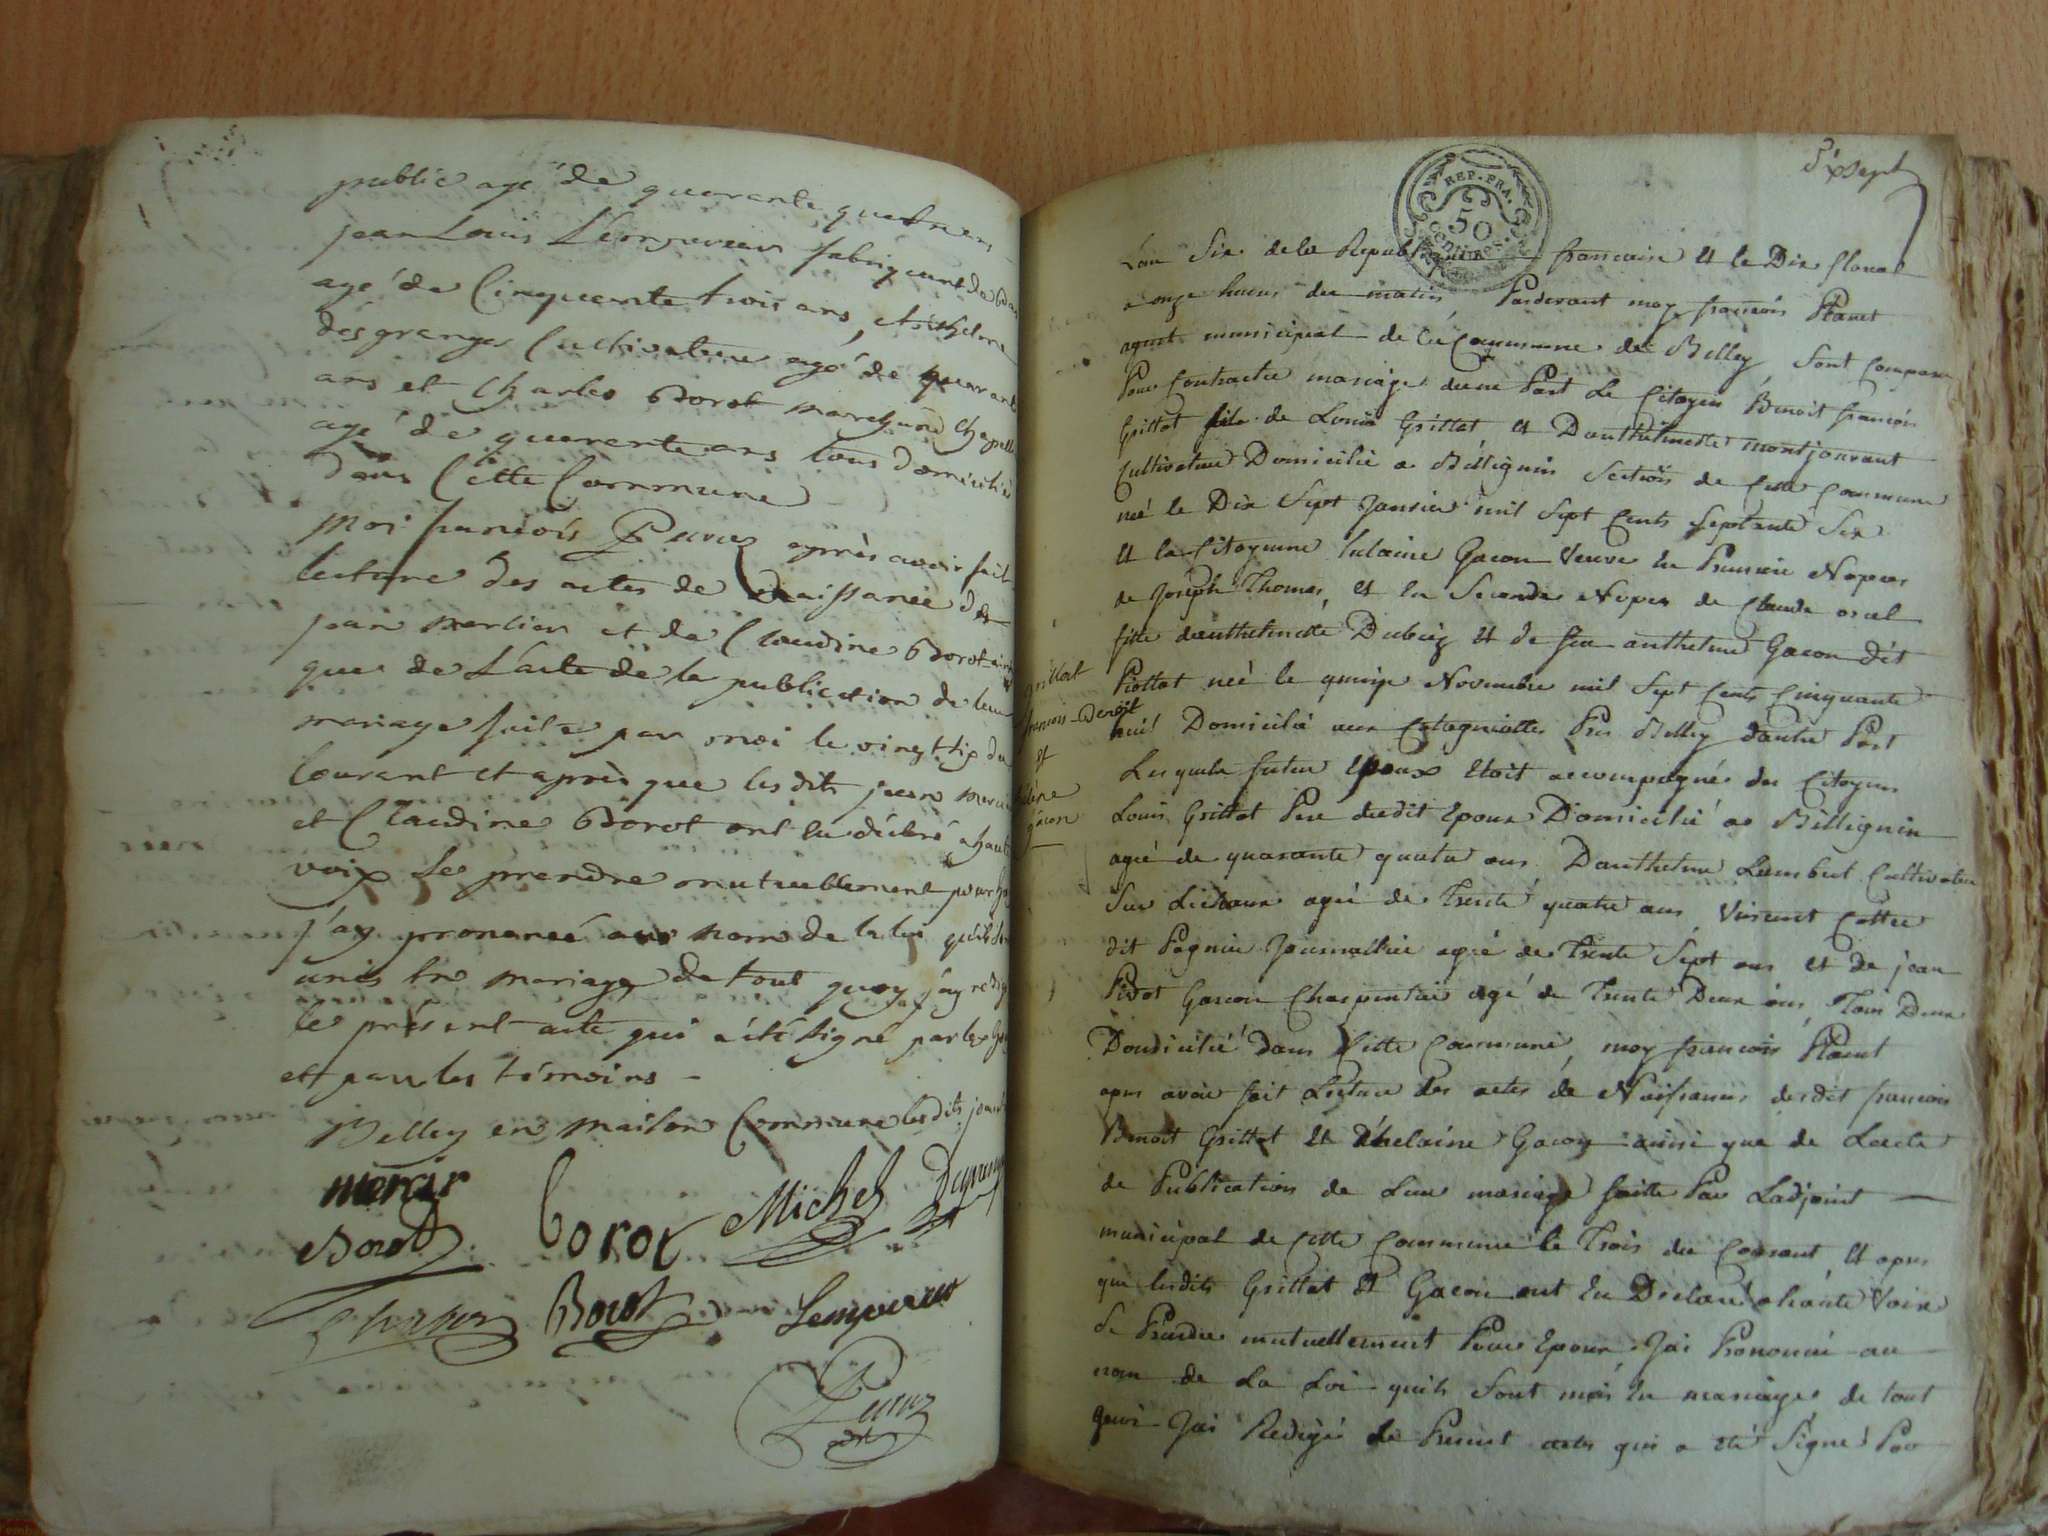 public agé de quarante quatre ans
jean Louis Lempereur fabriquant de bas
agé de Cinquante trois ans, Anthelme
désgranges Cultivateur agé de quarante
ans et Charles Borot marchand Chapellier
agé de quarente ans tous domiciliés
dans Cette Commune
moi françois Parraz après avoir fait
lecture des actes de Naissance des
jean mercier et de Claudine Borot ainsi
que de L'acte de la publication de leur
mariage faite par moi le vingt six du
Courant et après que les dits jean mercier
et Claudine Borot ont eu déclaré a haute
voix se prendre mutuellement pour
j'ay prononcé au nom de la loi qu'ils sont
unis en mariage de tout quoy j'ay redigé
le présent acte qui a été signé par les
et par les témoins
Belley en maison Commune lesdits jour
mercier
Borot Borot Michel Desgranges
Borot Lempereur
Dix sept
REP. FRA.
50
CENTIMES
Lan Six de la Republique francaise et le Dix floreal
a onze heures du matin Pardevant moy francois
agent municipal de la Commune de Belley Sont Comparu
Pour Contracter mariage dune Part Le Citoyen Benoit francois
Grillot fils de Louis Grillot et Danthelmette montjouvant
Cultivateur Domicilié a Billignin Section de Cette Commune
né le Dix Sept Janvier mil Sept Cents Septante Six
et la Citoyenne helaine Gacon Veuve en Premiere Nopces
de Joseph Thomas, et en Seconde Nopces de Claude
fille danthelmette Dubiez et de feu anthelme Gacon dit
Piottat née le quinze Novembre mil Sept Cents Cinquante
huit Domicilié aux Près Belley dautre Part
Grillot
francois-Benoit
et
helène
gacon
Lesquels futur Epoux etoit accompagnés des Citoyens
Louis Grillot Pere dudit Epoux Domicilié a Billignin
agé de quarante quatre ans Danthelme Lambert Cultivateur
Sur agé de Trente quatre ans Vincent Cottet
dit Pognin Journallier agé de Trente Sept ans et de jean
Pidot Gascon Charpentier agé de Trente Deux ans, Tous Deux
Domicilié dans Cette Commune, moy francois
apres avoir fait Lecture des actes de Naissances desdit francois
Benoit Grillot et d'helaine Gacon ainsi que de Lacte
de Publication de Leur mariage faitte Par Ladjoint
municipal de Cette Commune le Trois du Courant, et apres
que lesdits Grillot et Gacon ont eu Déclaré a haute Voix
se Prendre mutuellement Pour Epoux, Jai Prononcé au
nom de La Loi quils Sont unis en mariage de tout
quoi Jai Redigé le Present acte qui a été Signé Par